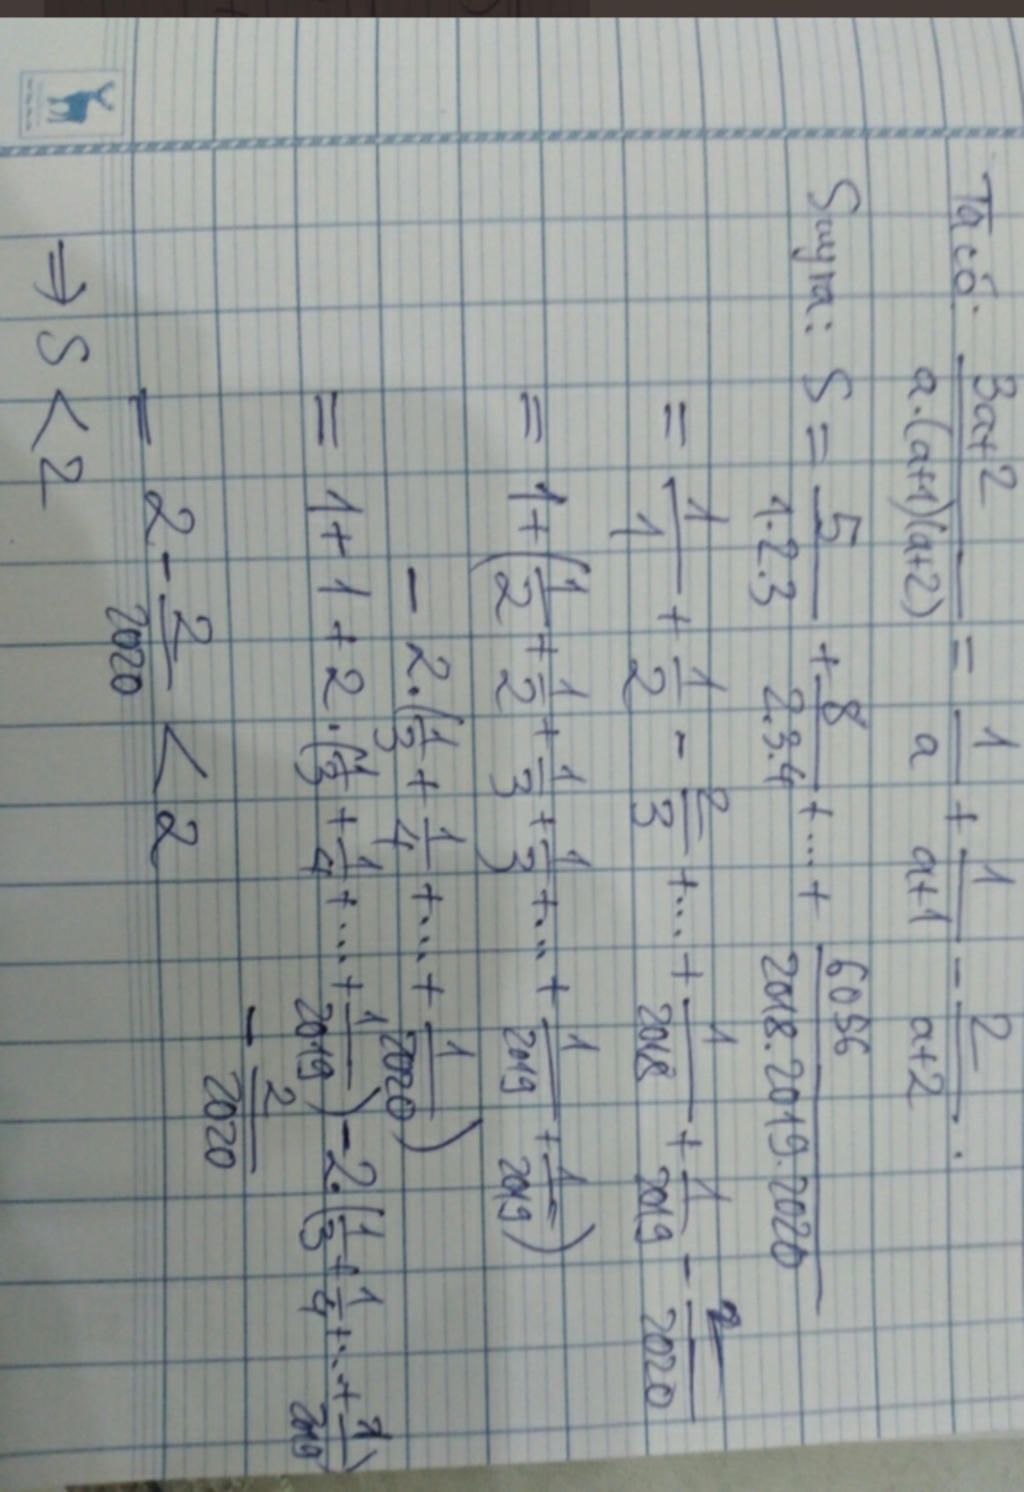 Ta có: \frac{3a+2}{a.(a+1)(a+2)} = \frac{1}{a} + \frac{1}{a+1} - \frac{2}{a+2}.
Suy ra: S = \frac{5}{1.2.3} + \frac{8}{2.3.4} + ... + \frac{6056}{2018.2019.2020}
= \frac{1}{1} + \frac{1}{2} - \frac{2}{3} + ... + \frac{1}{2018} + \frac{1}{2019} - \frac{2}{2020}
= 1 + (\frac{1}{2} + \frac{1}{2} + \frac{1}{3} + \frac{1}{3} + ... + \frac{1}{2019} + \frac{1}{2019})
- 2.(\frac{1}{3} + \frac{1}{4} + ... + \frac{1}{2020})
= 1 + 1 + 2.(\frac{1}{3} + \frac{1}{4} + ... + \frac{1}{2019}) - 2.(\frac{1}{3} + \frac{1}{4} + ... + \frac{1}{2019})
- \frac{2}{2020}
= 2 - \frac{2}{2020} < 2
⇒ S < 2